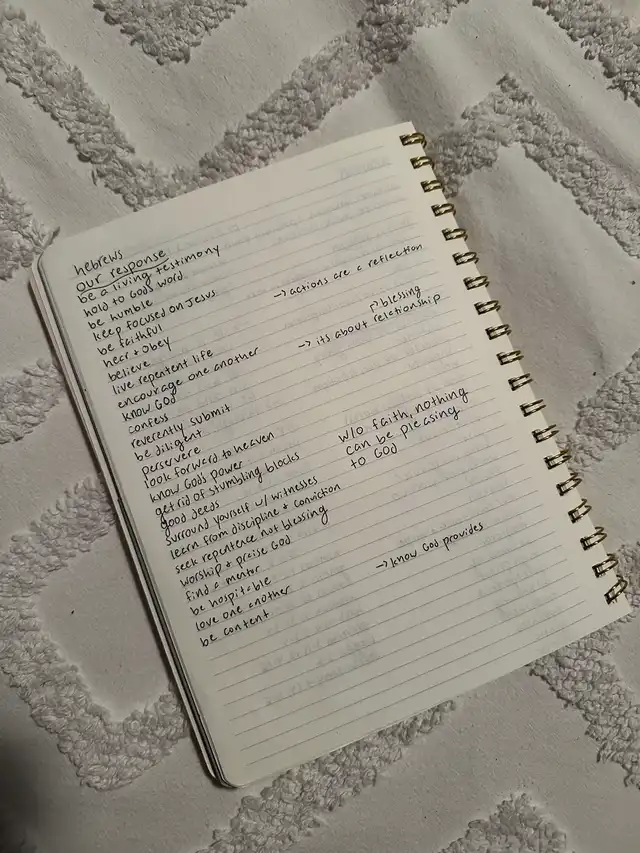 hebrews
our response
be a living testimony
hold to God's word
be humble
keep focused on Jesus → actions are a reflection
be faithful
hear + obey
believe
live repentent life
encourage one another → its about relationship
↱ blessing
know God
confess
reverently submit
be diligent
persevere
look forward to heaven
know God's power
get rid of stumbling blocks
good deeds
surround yourself w/ witnesses
learn from discipline + conviction
seek repentence not blessing
worship + praise God
find a mentor
be hospitable
love one another
be content → know God provides
w/o faith, nothing
can be pleasing
to God